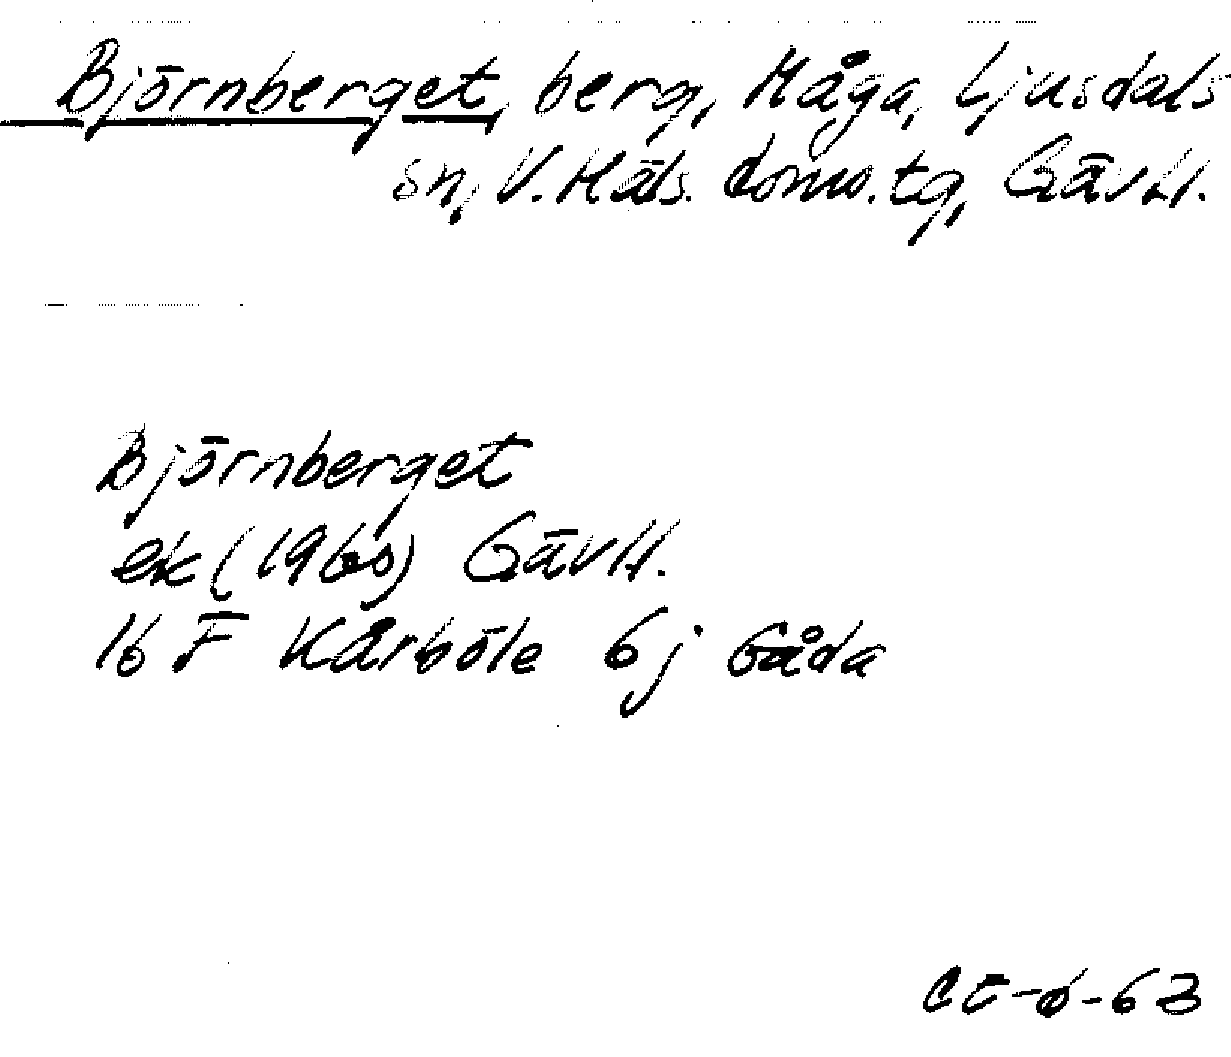 Björnberget, berg, Håga, Ljusdals
sn, V. Häls. doms.tg, Gävl.
Björnberget
ek (1960) Gävl.
16 F Kårböle 6j Gåda
CE-6-63